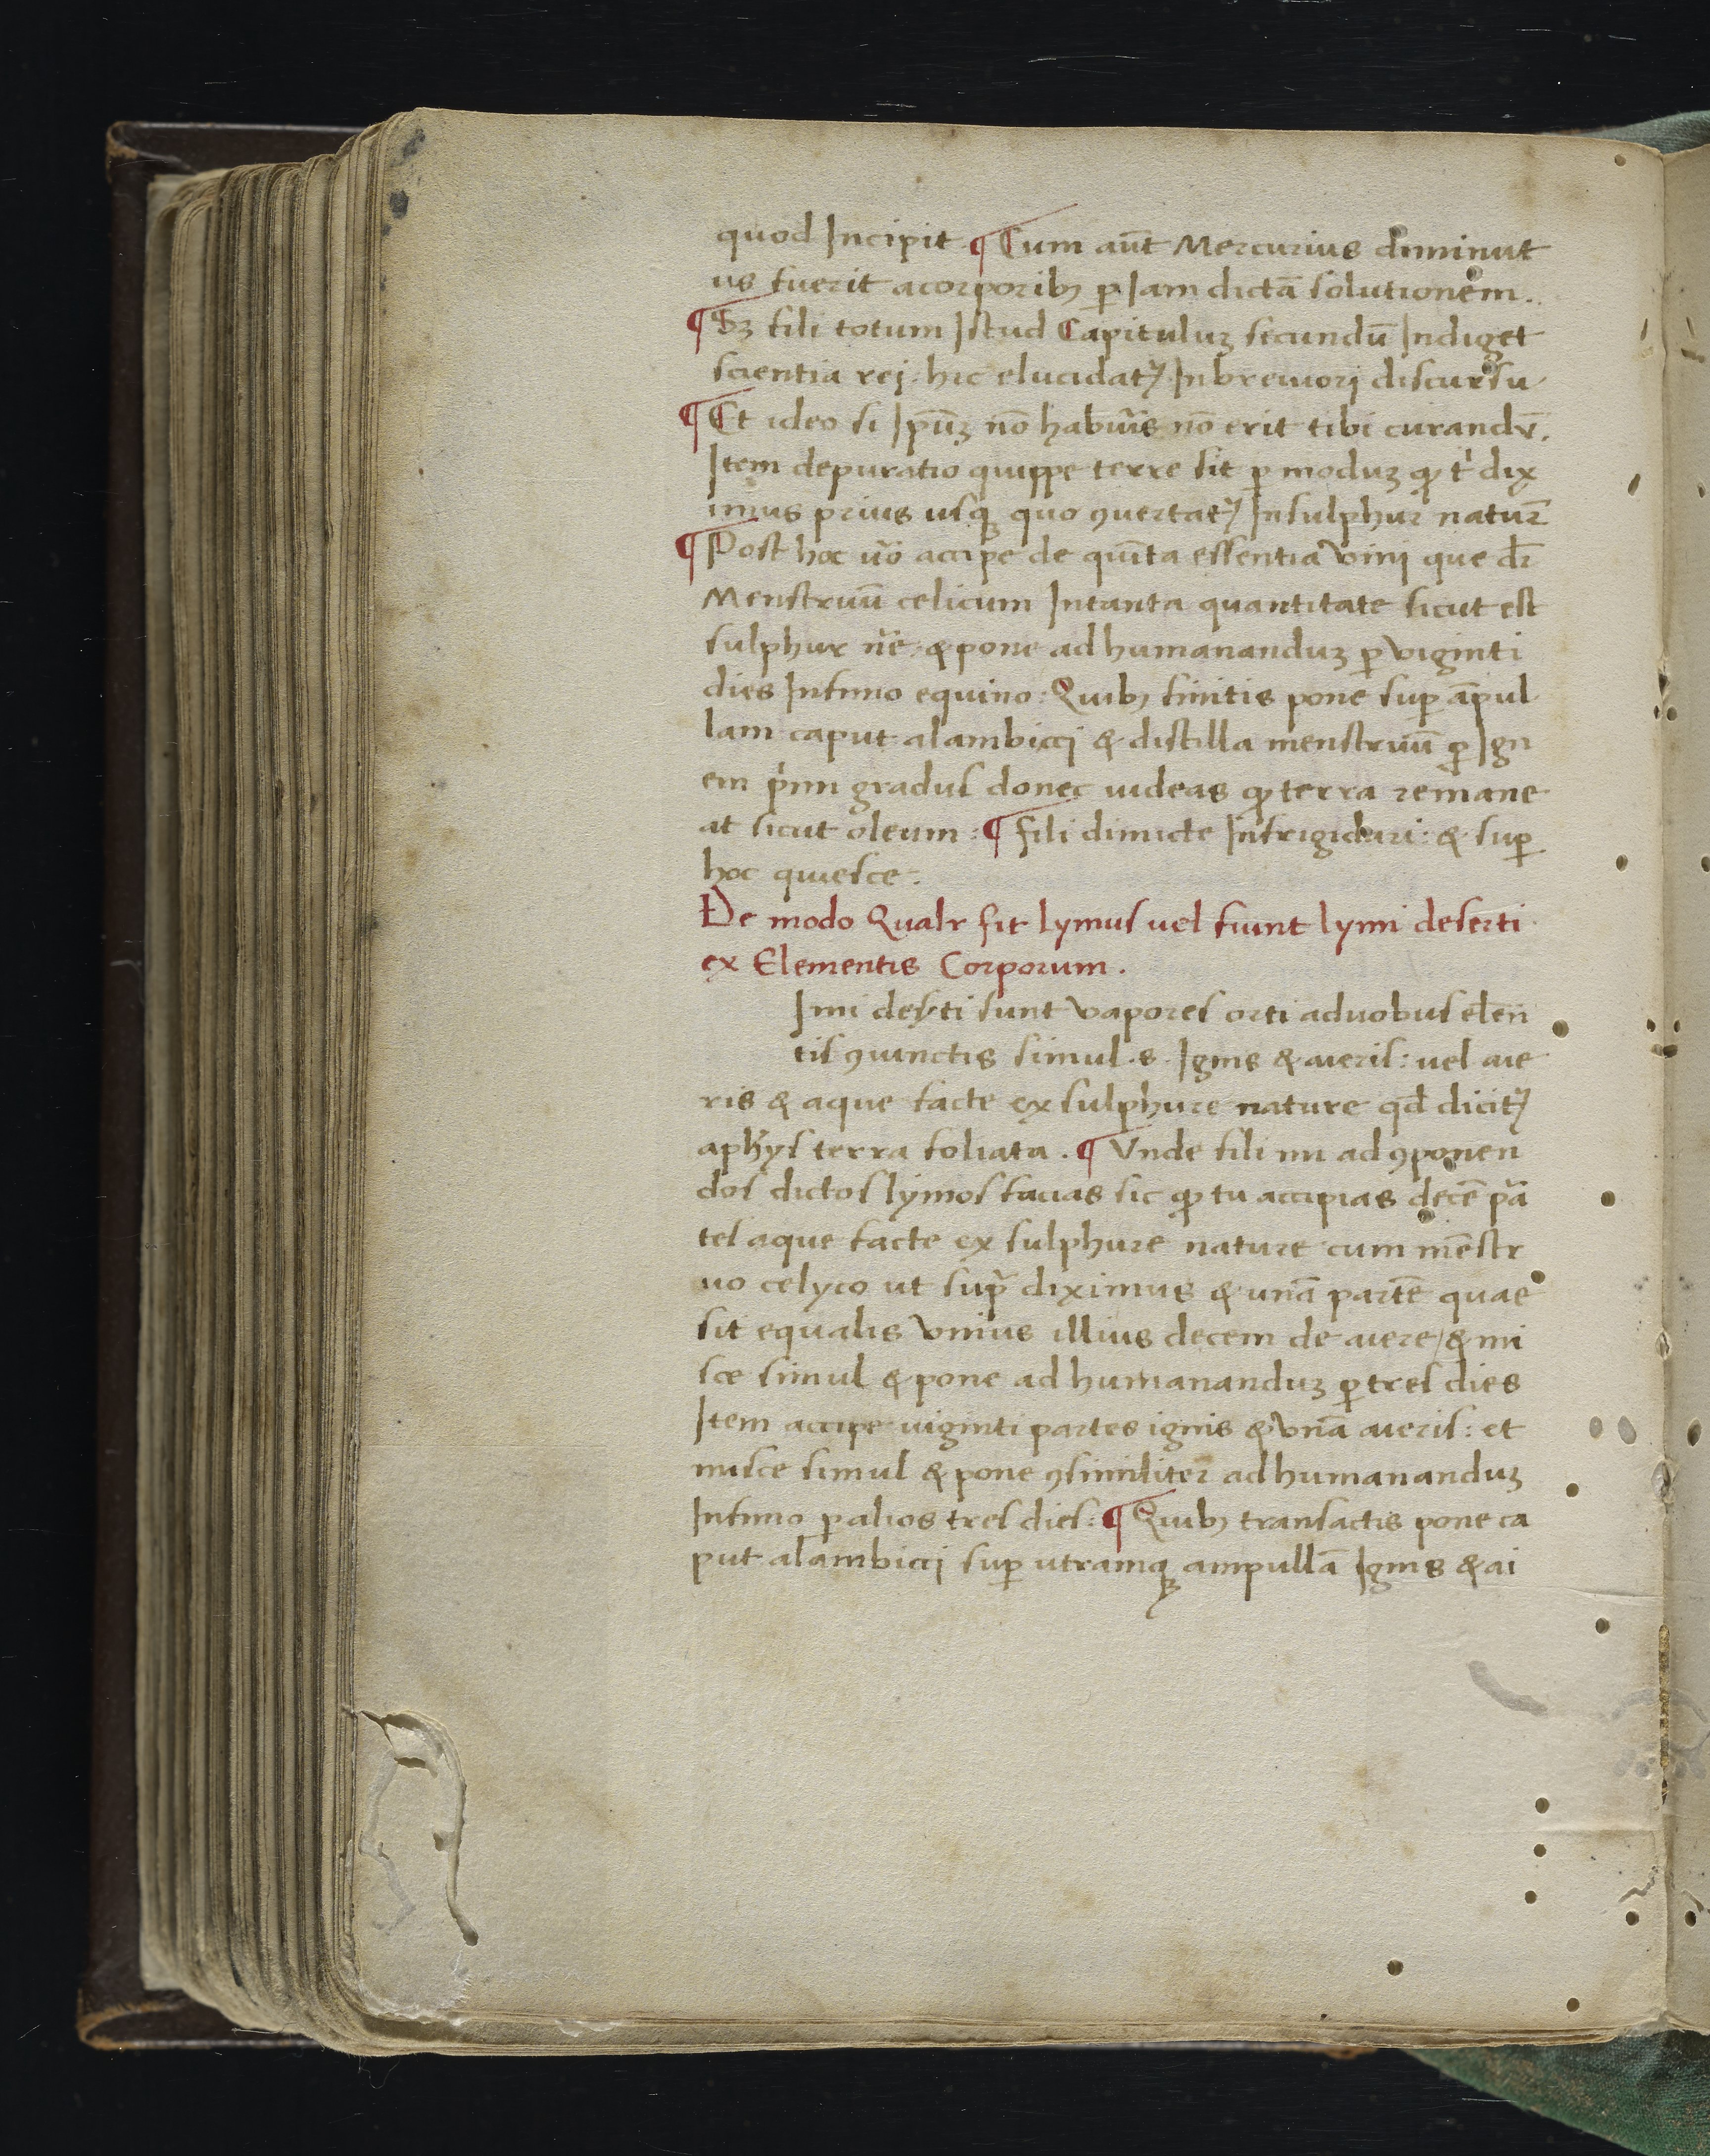 quod Incipit ¶ Cum aut̄ Mercurius diminut
us fuerit a corporibꝫ ꝑ Iam dictā solutionem.
¶ Sꝫ fili totum Istud Capituluꝫ secundū Indiget
scientia rej. hic elucidatꝭ In breviorj discursu
¶ Et ideo si Ip̄uꝫ nō habūis nō erit tibi curandū.
Item depuratio quippe terre fit ꝑ moduꝫ ꝙ t' dix
imus prius usqꝫ quo ꝯvertatꝭ In sulphur naturꝭ
¶ Post hoc v̄o accipe de quīta essentia vini que dꝛ̄
Menstruū celicum In tanta quantitate sicut est
sulphur n̄e & pone ad humananduꝫ ꝑ viginti
dies In fimo equino: Quibꝫ finitis pone suꝑ āpul
lam caput alambicci & distilla menstruū ꝑ Ign
em p'mi gradus donec videas ꝙ terra remane
at sicut oleum: ¶ fili dimicte Infrigidari: & suꝑ
hoc quiesce.
De modo Qualr fit lymus vel fiunt lymi deserti
ex Elementis Corporum.
Imi desꝭti sunt vapores orti a duobus elem̄
tis ꝯiunctis simul .s. Ignis & aieris: vel aie
ris & aque facte ex sulphure nature qd̄ dicitꝭ
a ph̄ys terra foliata. ¶ Vnde fili mi ad ꝯponen
dos dictos lymos facias sic ꝙ tu accipias decē pā
tes aque facte ex sulphure nature cum mēstr
uo celyco ut supꝭ diximus & unā partē quae
sit equalis vnius illius decem de aiere / & mi
sce simul & pone ad humananduꝫ ꝑ tres dies
Item accipe viginti partes ignis & vnā aieris: et
misce simul & pone ꝯsimiliter ad humananduꝫ
In fimo ꝑ alios tres dies: ¶ Quibꝫ transactis pone ca
put alambicci suꝑ utramqꝫ ampullā Ignis & ai